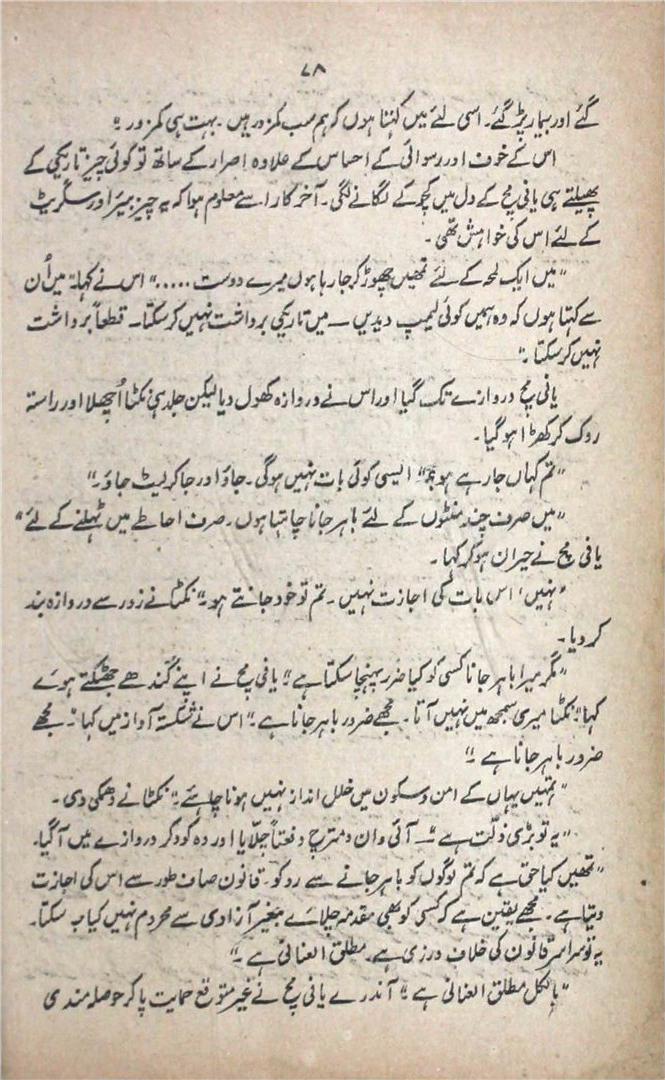 ۷۸
گئے اور بیمار پڑ گئے۔ اسی لئے میں کہتا ہوں کہ ہم سب کمزور ہیں۔ بہت ہی کمزور۔"
اس کے خوف اور رسوائی کے احساس کے علاوہ اصرار کے ساتھ تو کوئی چیز تاریکی کے
پھیلتے ہی یافی مچ کے دل میں کچوکے لگانے لگی۔ آخر کار اسے معلوم ہوا کہ یہ چیز بیئر اور سگریٹ
کے لئے اس کی خواہش تھی۔
"میں ایک لمحہ کے لئے تمھیں چھوڑ کر جا رہا ہوں میرے دوست ....." اس نے کہا۔ "میں اُن
سے کہتا ہوں کہ وہ ہمیں کوئی لیمپ دیدیں — میں تاریکی برداشت نہیں کر سکتا۔ قطعاً برداشت
نہیں کر سکتا۔"
یافی مچ دروازے تک گیا اور اس نے دروازہ کھول دیا لیکن جلد ہی نکٹا اُچھلا اور راستہ
روک کر کھڑا ہو گیا۔
"تم کہاں جا رہے ہو؟" ایسی کوئی بات نہیں ہوگی۔ جاؤ اور جا کر لیٹ جاؤ۔"
"میں صرف چند منٹوں کے لئے باہر جانا چاہتا ہوں۔ صرف احاطے میں ٹہلنے کے لئے"
یافی مچ نے حیران ہو کر کہا۔
"نہیں، اس بات کی اجازت نہیں۔ تم تو خود جانتے ہو۔" نکٹا نے زور سے دروازہ بند
کر دیا۔
"مگر میرا باہر جانا کسی کو کیا ضرر پہنچا سکتا ہے" یافی مچ نے اپنے کندھے جھٹکتے ہوئے
کہا "نکٹا میری سمجھ میں نہیں آتا۔ مجھے ضرور باہر جانا ہے۔" اس نے شکستہ آواز میں کہا "مجھے
ضرور باہر جانا ہے۔"
"تمہیں یہاں کے امن و سکون میں خلل انداز نہیں ہونا چاہئے۔" نکٹا نے دھمکی دی۔
"یہ تو بڑی ذلّت ہے" — آئی وان دمترچ دفعتاً چلّایا اور وہ کود کر دروازے میں آ گیا۔
"تمھیں کیا حق ہے کہ تم لوگوں کو باہر جانے سے روکو۔ قانون صاف طور سے اس کی اجازت
دیتا ہے۔ مجھے یقین ہے کہ کسی کو بھی مقدمہ چلائے بغیر آزادی سے محروم نہیں کیا جا سکتا۔
یہ تو سراسر قانون کی خلاف ورزی ہے۔ مطلق العنانی ہے۔"
"بالکل مطلق العنانی ہے" آندرے یافی مچ نے غیر متوقع حمایت پا کر حوصلہ مندی